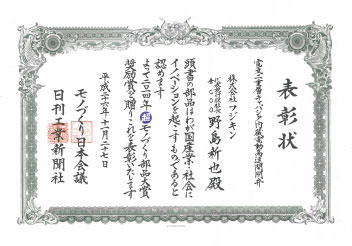 表彰状
電気二重層キャパシタ内蔵電動高速開閉弁
株式会社フジキン
野島新也殿
頭書の部品はわが国産業・社会に
イノベーションを起こすものであると
認めます
よって二〇一四年超モノづくり部品大賞
奨励賞を贈りこれを表彰いたします
平成二十六年十一月二十七日
モノづくり日本会議
日刊工業新聞社